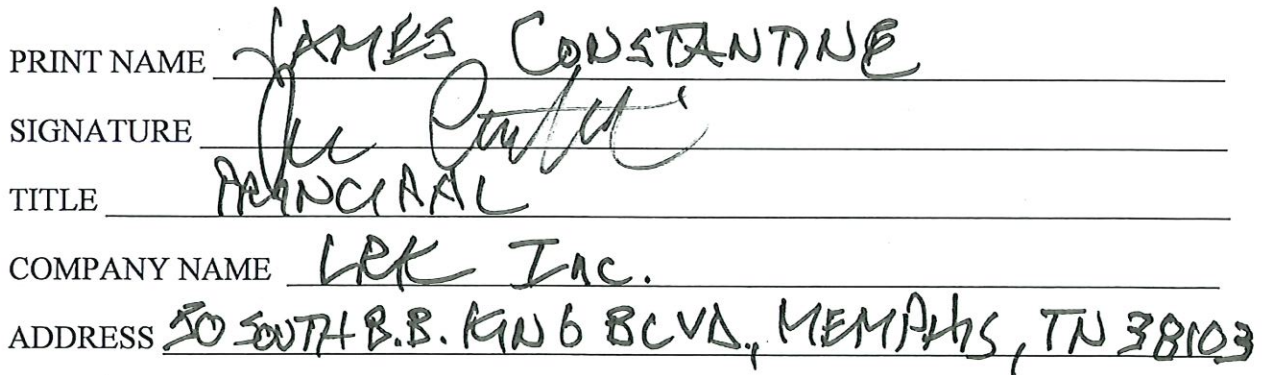 PRINT NAME JAMES CONSTANTINE
SIGNATURE
TITLE PRINCIPAL
COMPANY NAME LRK Inc.
ADDRESS 50 SOUTH B.B. KING BLVD., MEMPHIS, TN 38103